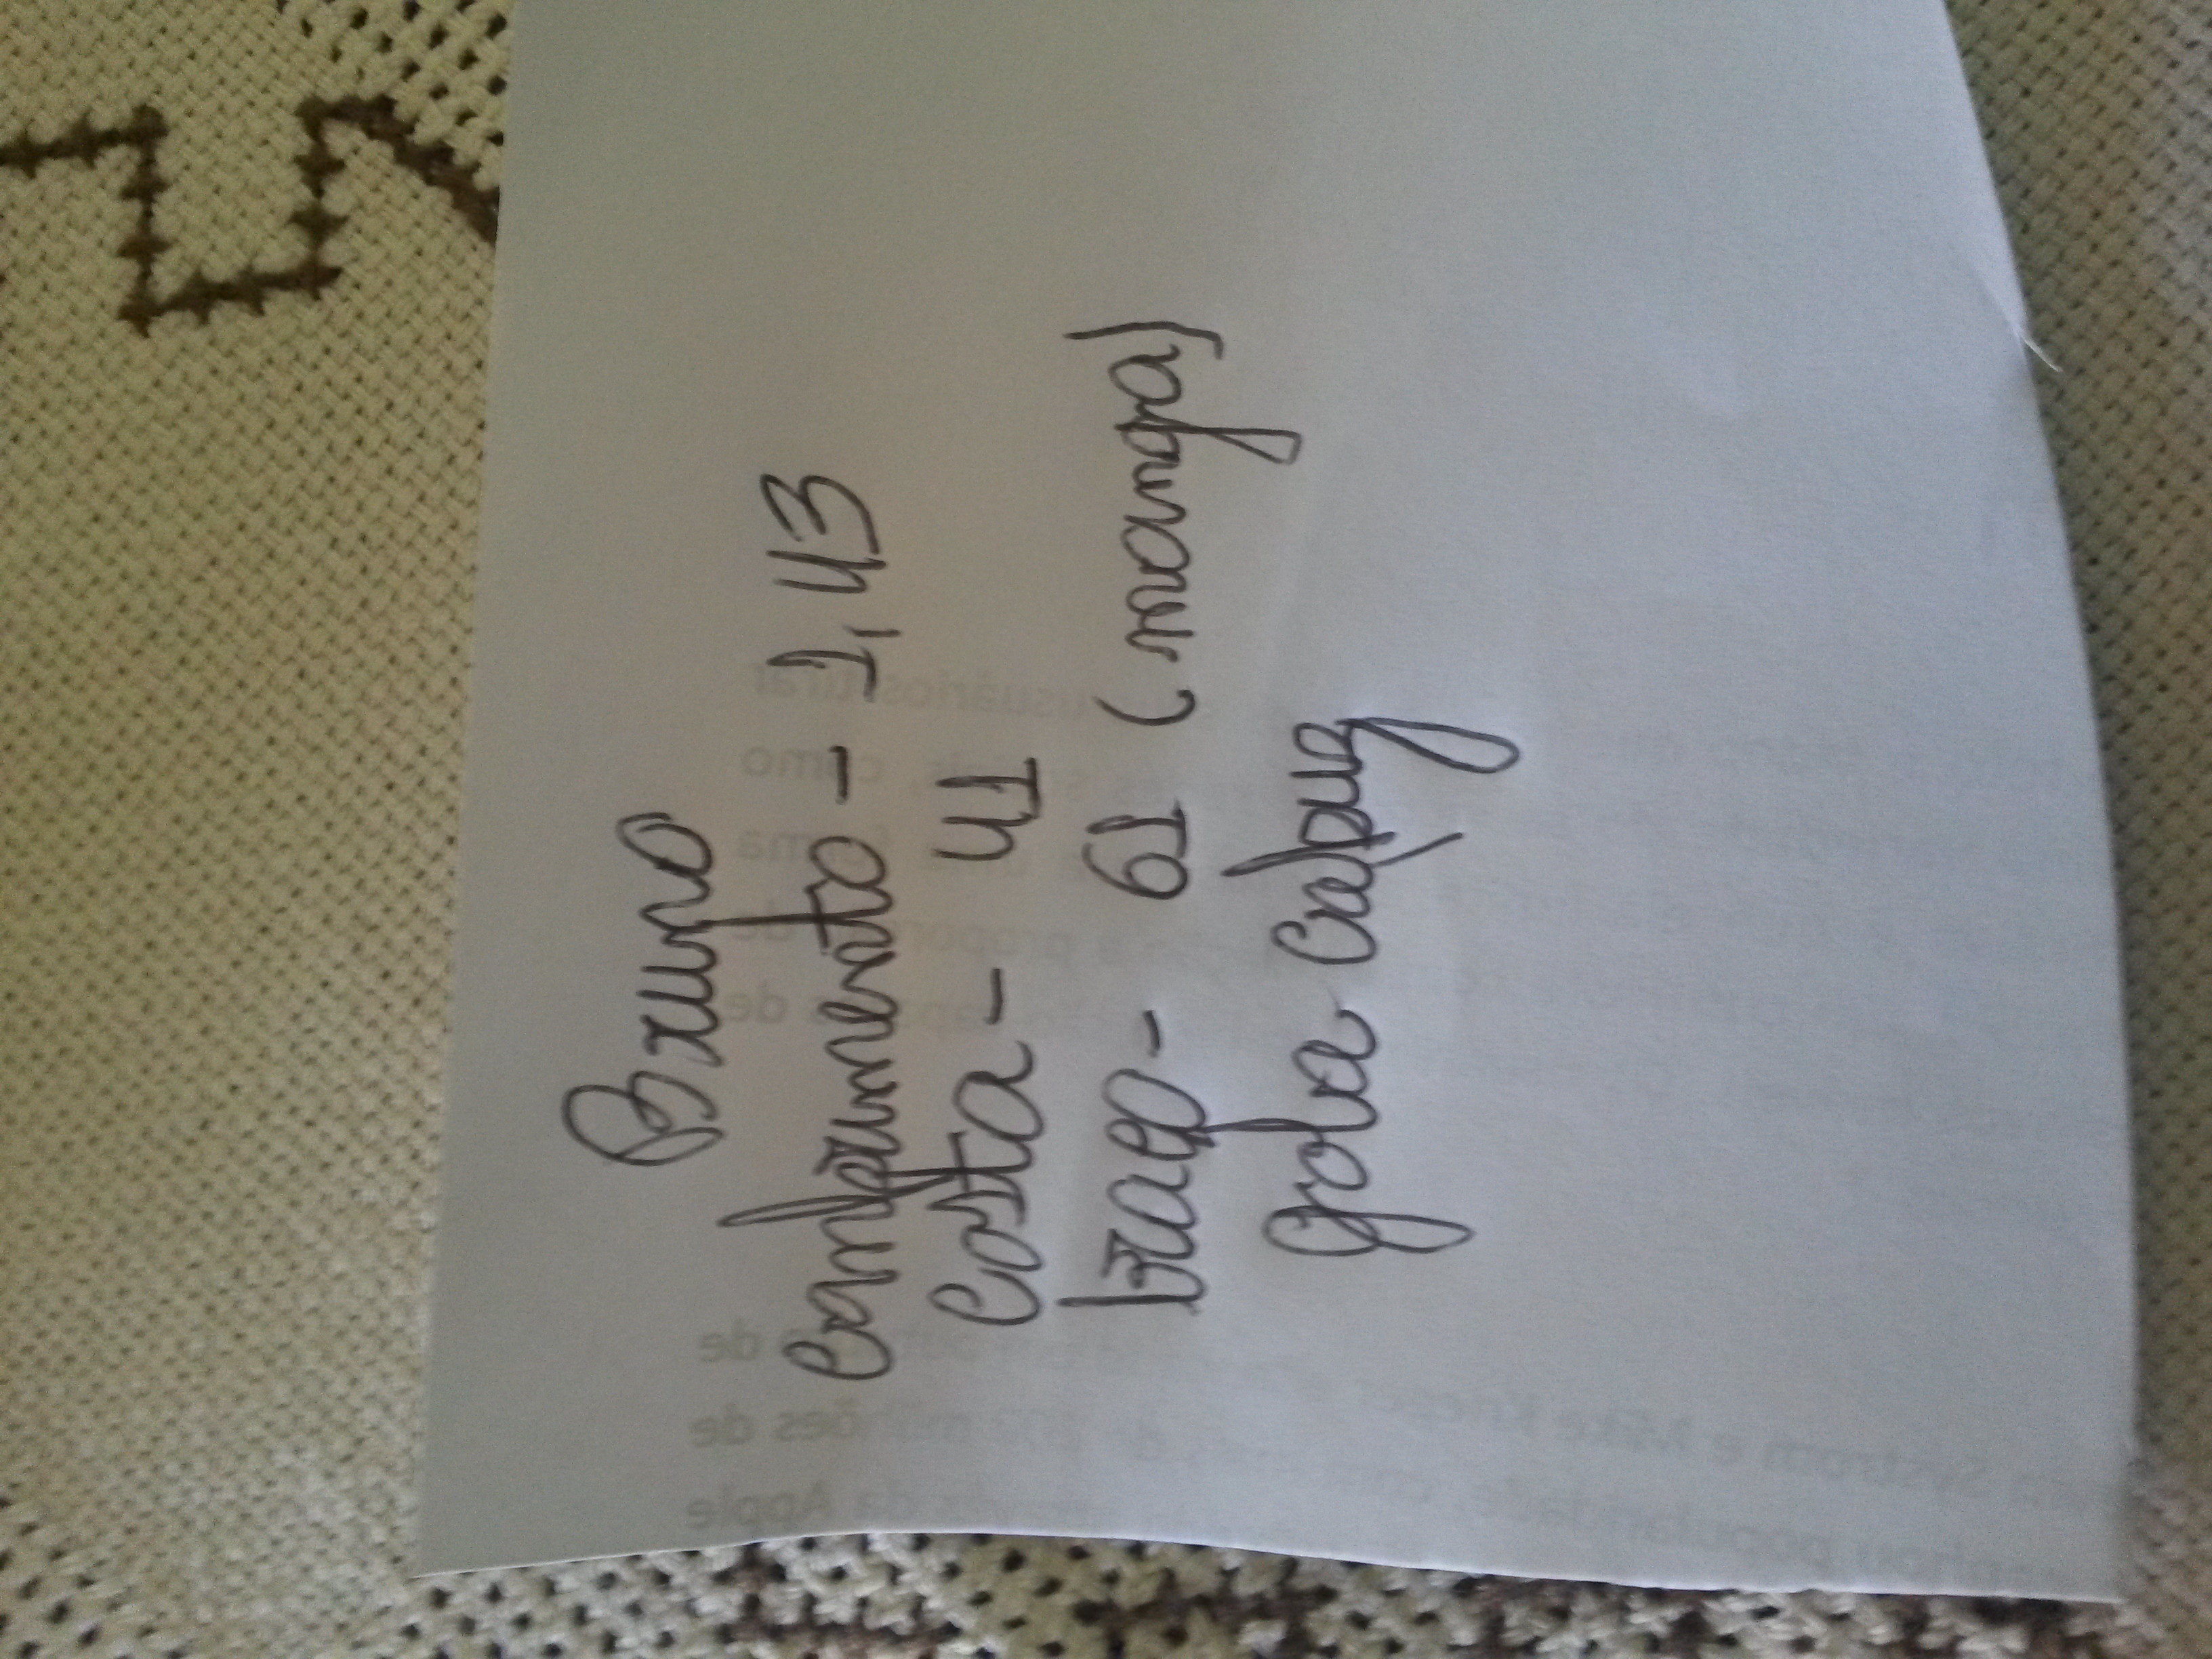 Bruno
comprimento - 1,43
Costa - 41
braço - 61 (manga)
gola capuz